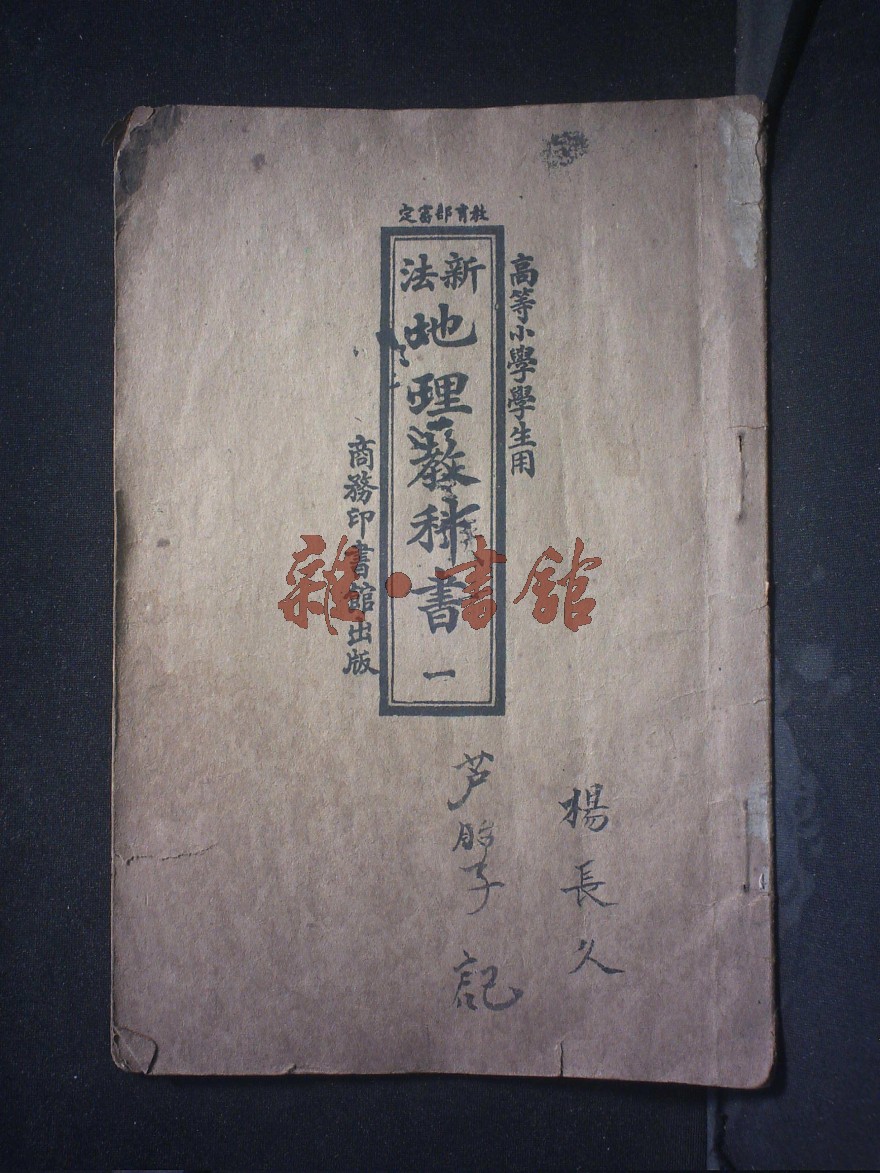 教育部審定
高等小學學生用
新法
地理教科書
一
商務印書館出版
雜·書館
楊長久
芦胎子記